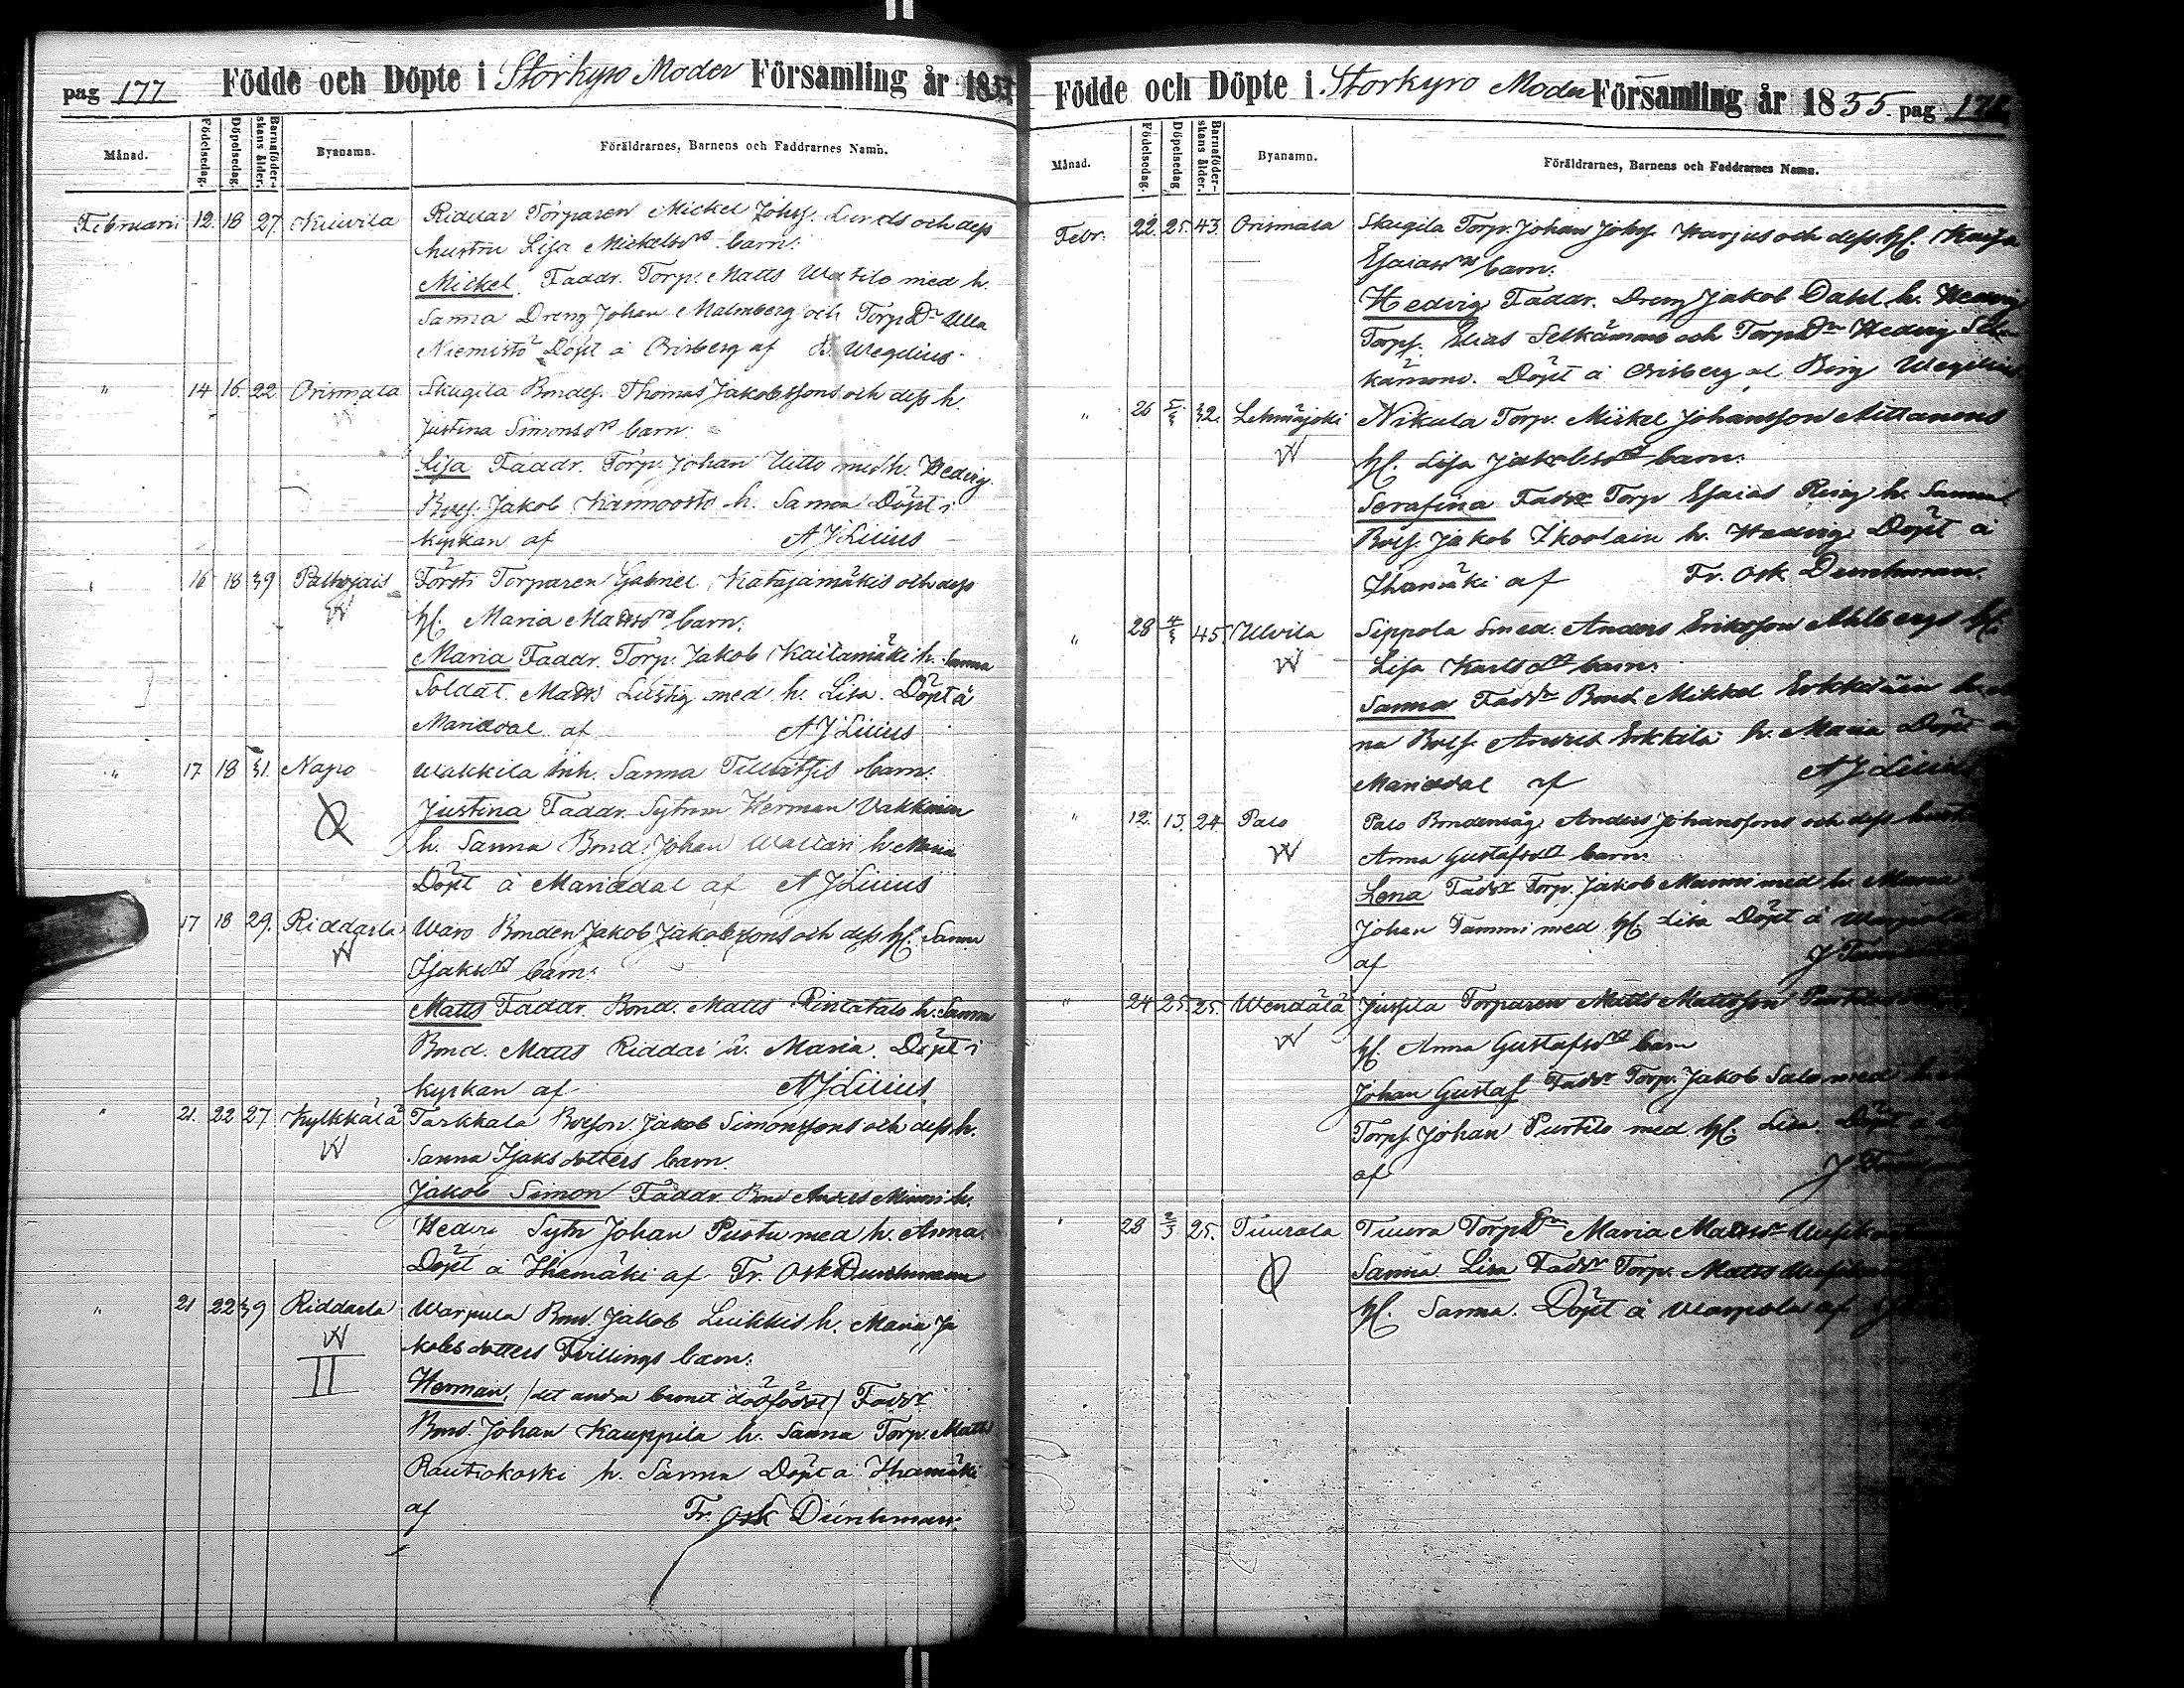 pag 177 Födde och Döpte i Storkyro Moder Församling år 1855
Månad. Födelsedag. Döpelsedag. Barnaföderskans ålder. Byanamn. Föräldrarnes, Barnens och Faddrarnes Namn.
Februari 12. 18 27. Kuivila Riddar Torparen Mickel Johss. Lunds och dess
hustru Lisa Mickelsdrs barn:
Mickel. Faddr. Torp. Matts Watilo med h.
Sanna Dreng Johan Malmberg och TorpDr Ulla
Niemistö Döpt å Orisberg af B. Wegelius
" 14 16. 22 Orismala Skugila Bondes. Thomas Jakobssons och dess h.
W Justina Simonsdrs barn:
Lisa Faddr. Torp. Johan Uitto med h. Hedvig.
Bves. Jakob Kannoosto h. Sanna Döpt i
kyrkan af A J Lilius
" 16 18 39 Palhojais Försti Torparen Gabriel Katajamäkis och dess
W hf. Maria Mattsdrs barn:
Maria Faddr. Torp. Jakob Kaitamäki h. Sanna
Soldat. Matts Lustig med h. Lisa. Döpt å
Mariedal af A J Lilius
" 17. 18 31. Napo Wakkila Inh. Sanna barn:
Justina Faddr. Sytnm Herman Vakkinen
h. Sanna Bond. Johan Wallari h. Maria
Döpt å Mariedal af A J Lilius
17 18 29. Riddarla Waro Bonden Jakob Jakobssons och dess hf. Sanna
W Isaksdrs barn:
Matts Faddr. Bond. Matts Rintatalo h. Sanna
Bond. Matts Riddar h. Maria. Döpt i
kyrkan af A J Lilius.
" 21. 22 27 Kylkkälä Tarkkala Bveson. Jakob Simonssons och dess h.
W Sanna Isaksdotters barn.
Jakob Simon Faddr. Bond Anders Minni h.
Hedv. Sytn Johan Pusto med h. Anna.
Döpt å Ihamäki af Fr. Osk Durchman
" 21 22 39 Riddarla Warpula Bond. Jakob Luikkis h. Maria Ja
W kobsdotters Tvillings barn:
II Herman, (det andra barnet dödfödt) Faddr
Bond. Johan Kauppila h. Sanna Torp. Matts
Rautiokoski h. Sanna Döpt å Ihamäki
af Fr. Osk Durchman.
Födde och Döpte i Storkyro Moder Församling år 1855. pag
Månad. Födelsedag. Döpelsedag Barnaföderskans ålder. Byanamn. Föräldrarnes, Barnens och Faddrarnes Namn.
Febr. 22. 25. 43. Orismala Skugila Torp. Johan Johss. Harjus och dess hf. Kaisa
Esaiasdrs barn:
Hedvig Faddr. Dreng Jakob Dahl h. Hedvig
Torps. Elias Selkämö och TorpDr Hedvig Sel
kämö. Döpt å Orisberg af Berg Wegelius
" 26 5/3 32. Lehmäjoki Nikula Torp. Mickel Johansson Mittanens
W hf. Lisa Jakobsdrs barn:
Serafina Faddr Torp Esaias Ring h. Sanna
Bves. Jakob Ikoolain h. Hedvig Döpt å
Ihamäki af Fr. Osk Durchman.
" 28 4/3 45 Ulvila Sippola Smed. Anders Eriksson Ahlbergs hf.
W Lisa Karlsdrs barn:
Sanna Faddr Bond Mikkel h.
na Bves. Anders Erkkilä h. Maria Döpt å
Mariedal af A J Lilius
" 12. 13. 24 Palo Palo Bondemåg Anders Johanssons och dess hustr
W Anna Gustafsdrs barn:
Lena Faddr Torp. Jakob Manni med h. Maria
Johan Tammi med hf Lisa Döpt å Warpala
af J
" 24 25. 25. Wendälä Jussila Torparen Matts Mattsson Purtilos
W hf. Anna Gustafsdrs barn
Johan Gustaf Faddr Torp. Jakob Salo med h
Torps. Johan Purtilo med hf. Lisa. Döpt å
af J
" 28 2/3 25. Tuurala Tuura TorpDr Maria Mattsdr
Sanna Lisa Faddr Torp. Matts
hf. Sanna. Döpt å Warpola af